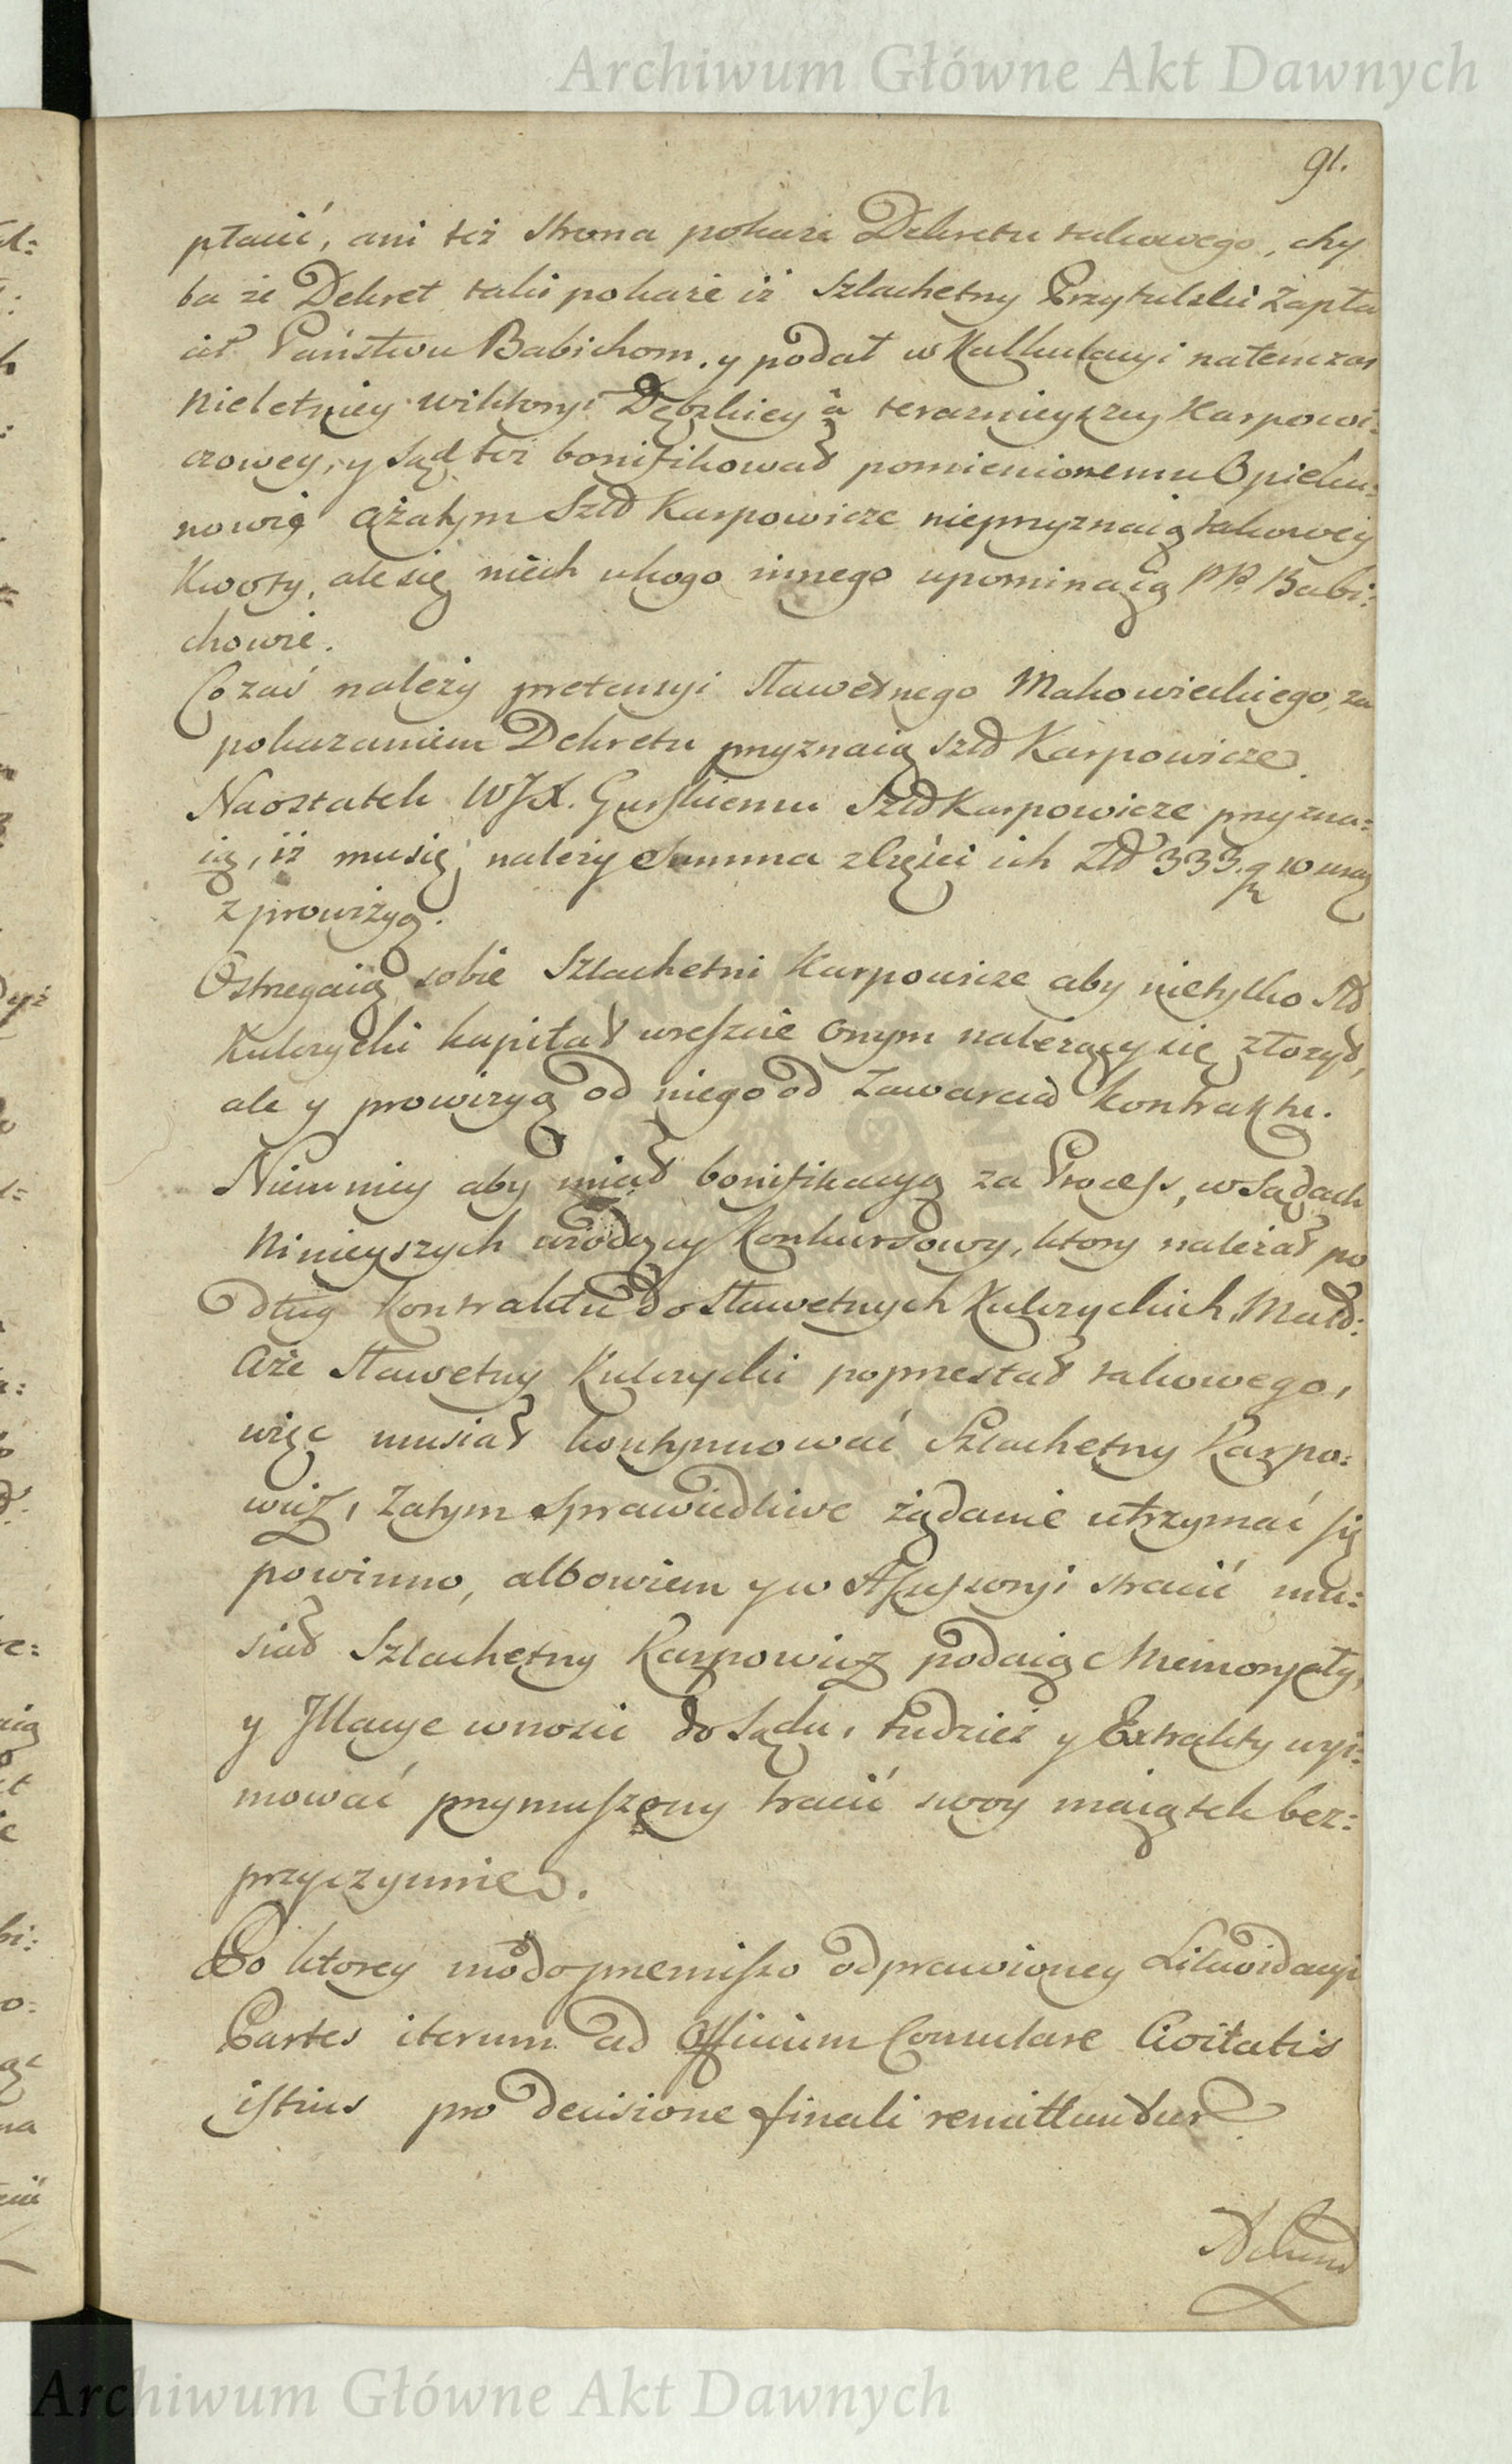 Archiwum Główne Akt Dawnych
91.
płacić, ani też Strona pokaże Dekretu takowego, chy
ba że Dekret taki pokaże iż Szlachetny Przytulski Zapła
cił Państwu Babichom. y podał w Kalkulacyi natenczas
Nieletniey Wiktoryi Dębskiey â teraznieyszey Karpowi:
czowey, y Sąd też bonifikował pomienionemu Opieku:
nowi ażatym Szld Karpowicze nieprzyznaią takowey
Kwoty, ale się niech ukogo innego upominaią PP. Babi:
chowie.
Co zaś należy pretensyi Sławetnego Makowieckiego, za
pokazaniem Dekretu przyznaią Szld Karpowicze.
Naostatek WJX. Gurskiemu Szld Karpowicze przyzna:
ią, iż mu się należy Summa zlczęści ich Zld 333. gr 10 wraz
z prowizyą.
Ostrzegaią sobie Szlachetni Karpowicze aby nietylko Sld
Kulczycki kapitał wreszcie Onym należący się złożył,
ale y prowizyą od niego od Zawarcia Kontraktu.
Niemniey aby miał bonifikacyą za Process, w Sądach
Ninieyszych wiodący Konkursowy, ktory należał po
dług Kontraktu do Sławetnych Kulczyckich Małd:
Aże Sławetny Kulczycki poprzestał takowego,
więc musiał kontynuować Szlachetny Karpo:
wicz, Zatym Sprawiedliwe żądanie utrzymać się
powinno, albowiem y w Assessoryi stracić mu:
siał Szlachetny Karpowicz podaiąc Memoryały,
y Illacye wnosić do Sądu, tudzież y Extrakty wyi:
mować przymuszony tracić swoy maiątek bez:
przyczynnie.
Po ktorey modo præmisso odprawioney Likwidacyi
Partes iterum ad Officium Consulare Civitatis
istius pro decisione finali remittuntur.
Archiwum Główne Akt Dawnych